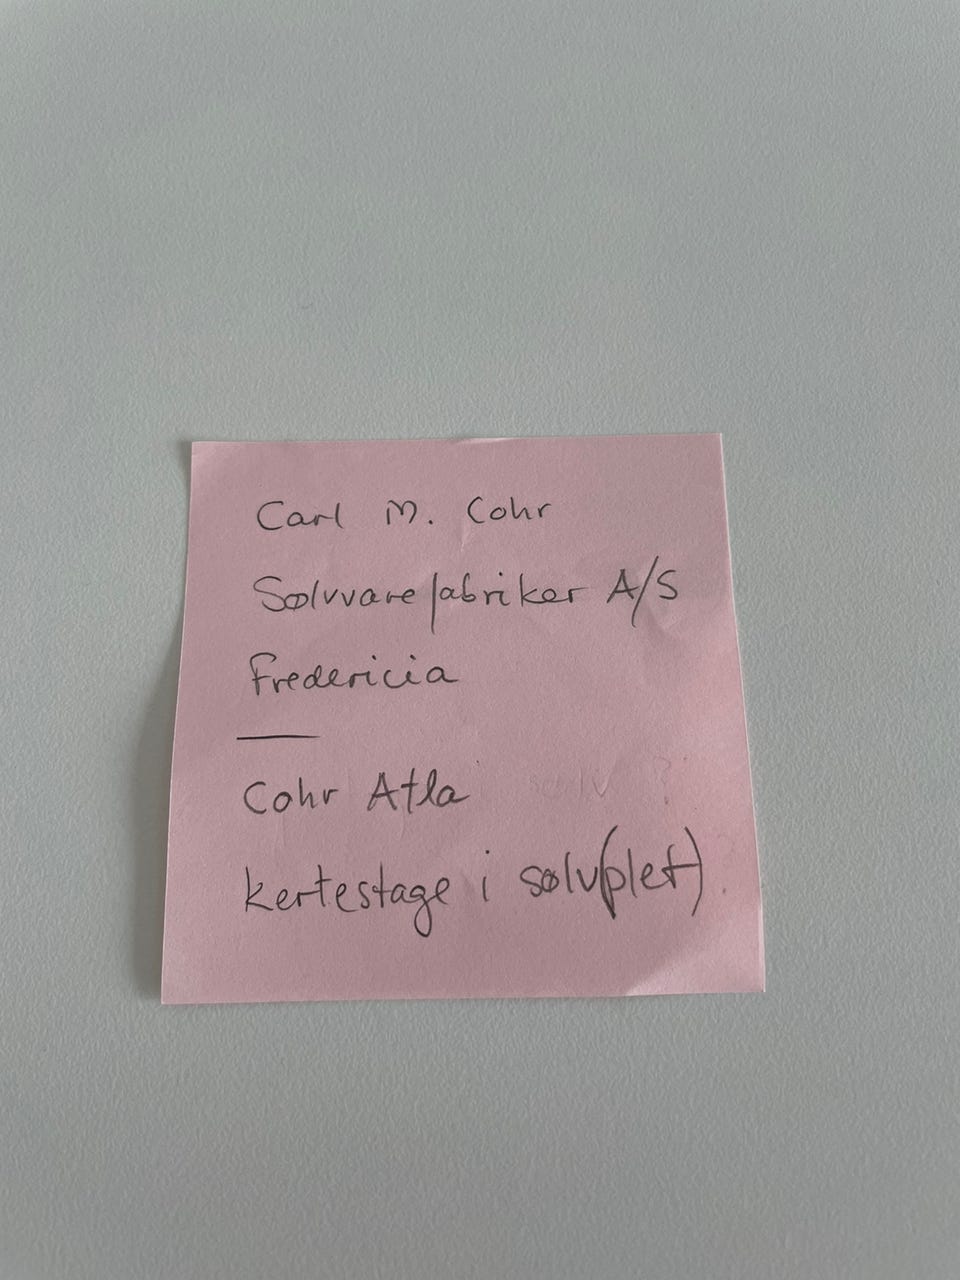 Carl M. Cohr
Sølvvarefabriker A/S
Fredericia
Cohr Atla
kertestage i sølv(plet).